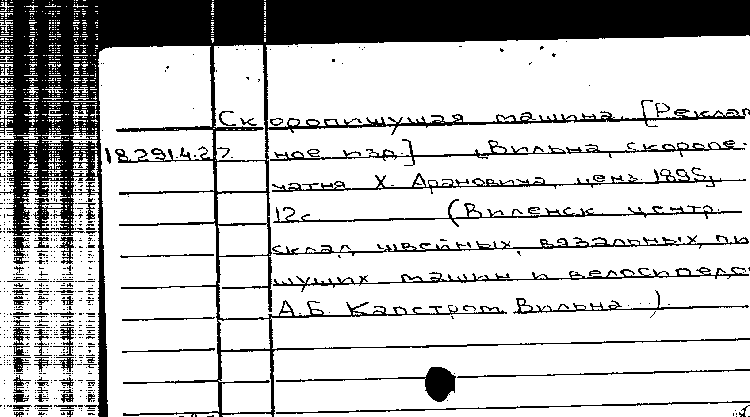 Скоропишущая машина. [Реклам
18.291.4.27. ное изд.] Вильна, скоропе-
чатня Х. Арановича, ценз 1895,
12с (Виленск центр.
склад швейных, вязальных, пи
шущих машин и велосипедо
А.Б. Капстром Вильна..).